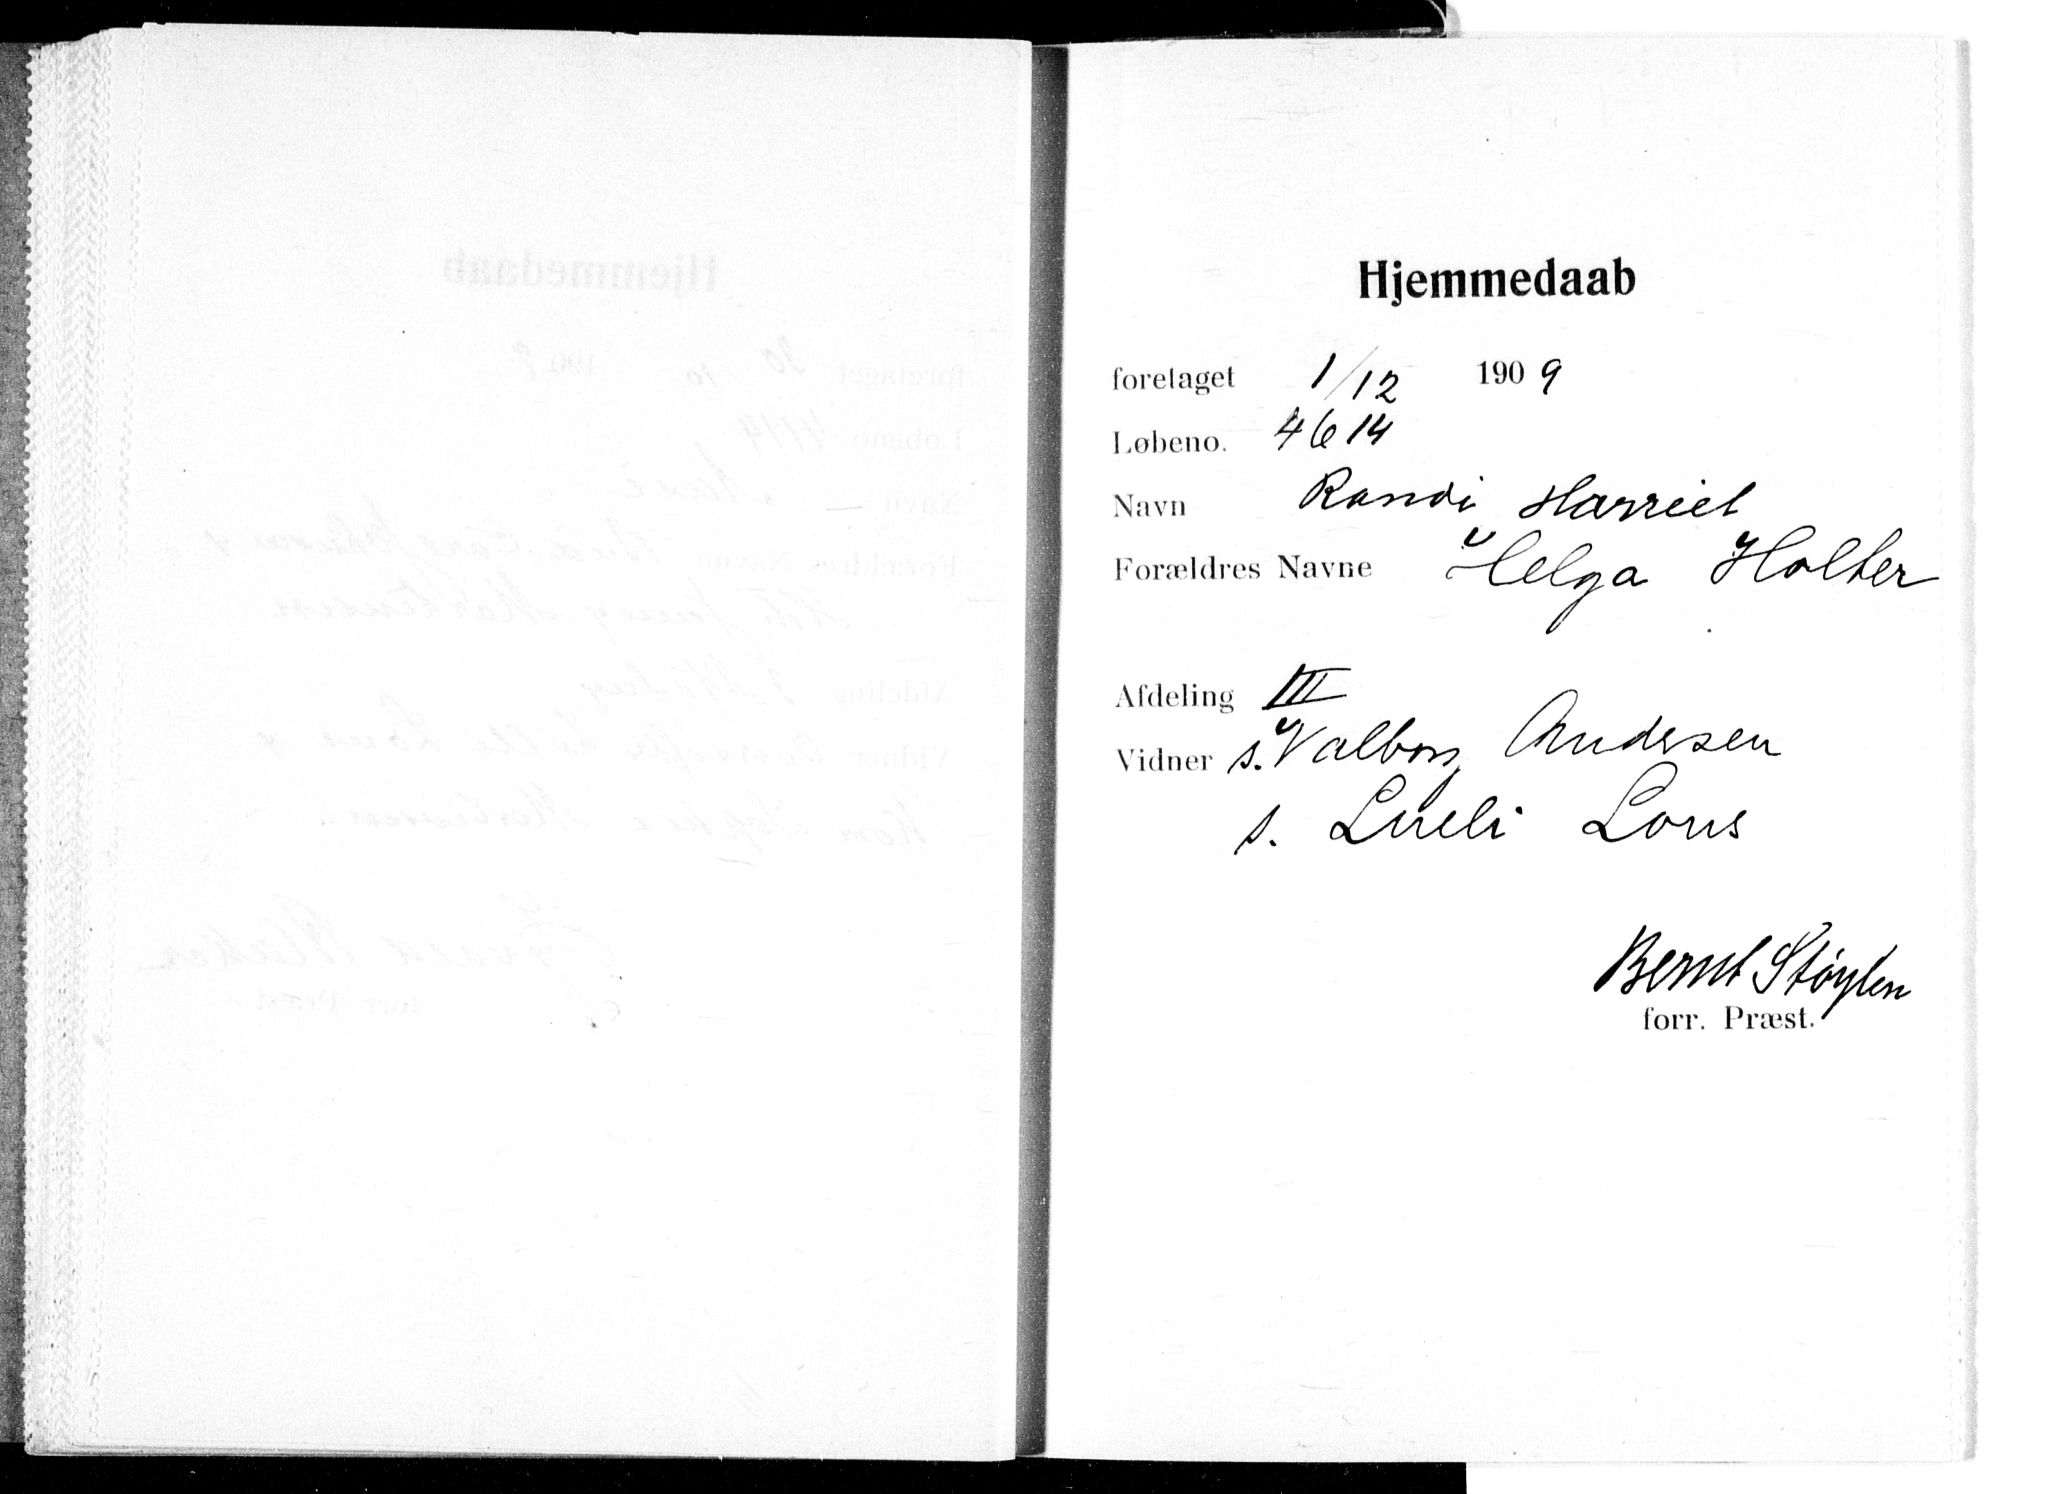 Hjemmedaab
foretaget 1/12 1909
Løbeno. 4614
Navn Randi Harriet
Forældres Navne Helga Holter
Afdeling III
Vidner s. Valborg Andersen
s. Lueli Lous
Bernt Støylen
forr. Præst.